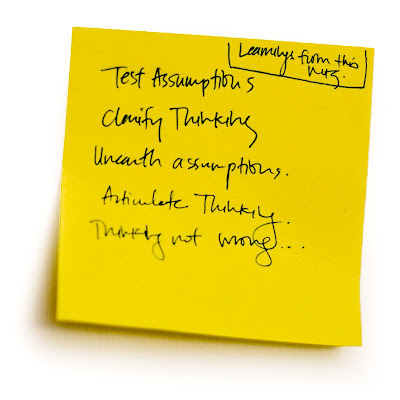 Learnings from this
mtg.
Test Assumptions
Clarify Thinking
Unearth assumptions.
Articulate Thinking.
Thinking not wrong...